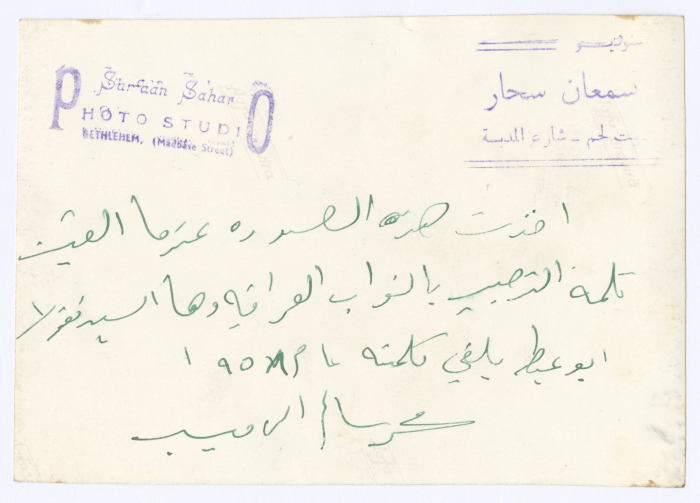 Sarfaan Sahar
PHOTO STUDIO
BETHLEHEM, (Madbase Street)
ستوديو
سمعان سحار
بيت لحم - شارع المدبسة
اخذت هذه الصوره عندما القيت
كلمة الترحيب بالنواب العراقيه وها السيد نقولا
ابو عيطه يلقي كلمته
محمد سالم الذويب